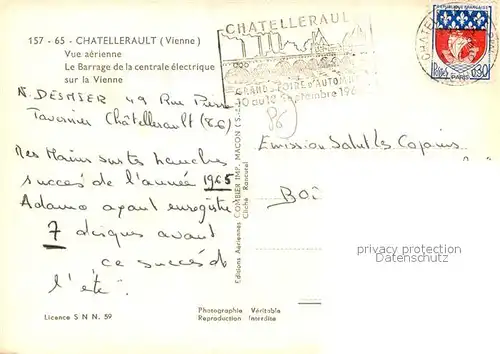 157 - 65 - CHATELLERAULT (Vienne)
Vue aérienne
Le Barrage de la centrale électrique
sur la Vienne
N. DESMIER 49 Rue Pierre
Tavannier Châtellerault (86)
Mes Mains sur tes hanches
succès de l'année 1965
Adamo ayant enregistré
7 disques avant
ce succès de
l'été.
Licence S N N. 59
Photographie Véritable
Reproduction Interdite
Editions Aériennes COMBIER IMP. MACON (S.-
Cliché Rancurel
CHATELLERAUL
GRANDE FOIRE D'AUTOMNE
10 au 12 Septembre 196
86
CHATELLE
REPUBLIQUE FRANÇAISE
Postes 0,30
PARIS
Emission Salut les Copains
BOI
privacy protection
Datenschutz